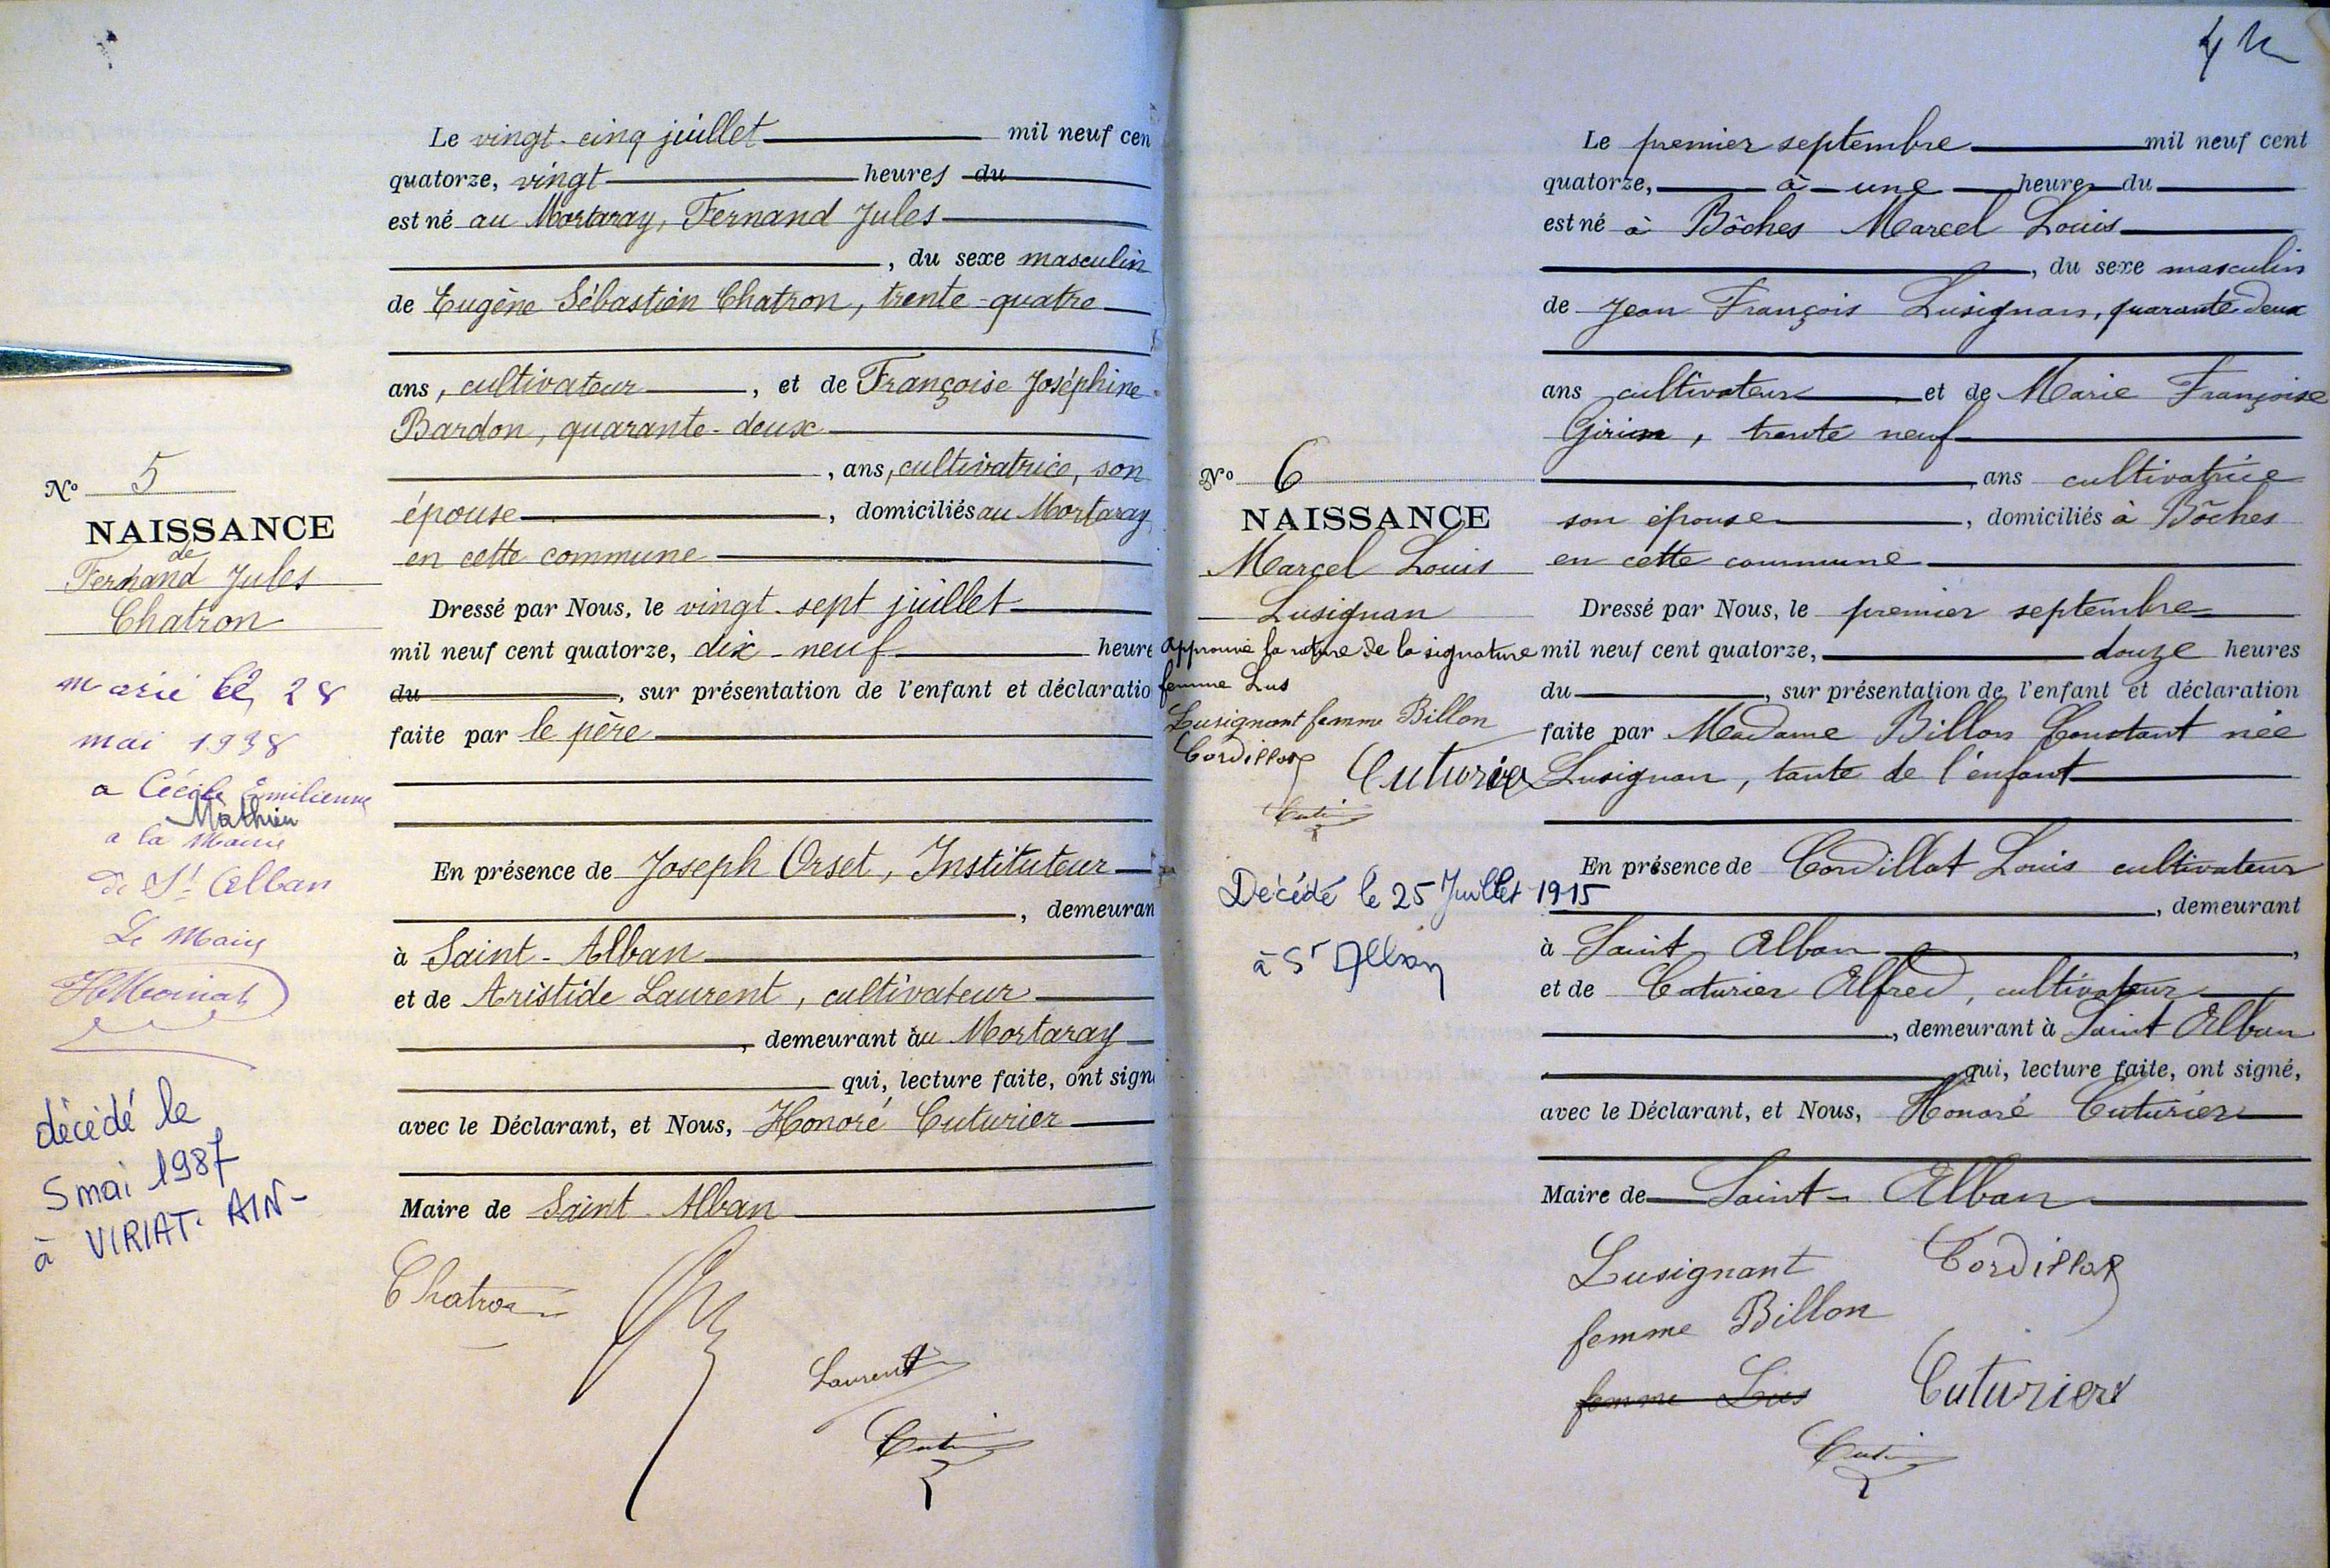 Le vingt-cinq juillet mil neuf cen
quatorze, vingt heures du
est né au Mortaray, Fernand Jules
, du sexe masculin
de Eugène Sébastien Chatron, trente-quatre
ans, cultivateur, et de Françoise Joséphine
Bardon, quarante-deux
, ans, cultivatrice, son
épouse, domiciliés au Mortaray
en cette commune
Dressé par Nous, le vingt-sept juillet
mil neuf cent quatorze, dix-neuf heure
du, sur présentation de l'enfant et déclaratio
faite par le père
En présence de Joseph Orset, Instituteur
, demeuran
à Saint-Alban
et de Aristide Laurent, cultivateur
, demeurant au Mortaray
qui, lecture faite, ont sign
avec le Déclarant, et Nous, Honoré Cuturier
Maire de Saint-Alban
Chatron
Laurent
Nº 5
NAISSANCE
de
Fernand Jules
Chatron
marié le 28
mai 1938
a Cécile Emilienne
Mathieu
a la Mairie
de St Alban
Le Maire
décédé le
5 mai 1987
à VIRIAT. AIN-
Le premier septembre mil neuf cent
quatorze, à une heure du
est né à Bôches Marcel Louis
, du sexe masculin
de Jean François Lusignan, quarante deux
ans cultivateur et de Marie Françoise
, trente neuf
, ans cultivatrice
son épouse, domiciliés à Bôches
en cette commune
Dressé par Nous, le premier septembre
mil neuf cent quatorze, douze heures
du, sur présentation de l'enfant et déclaration
faite par Madame Billon Constant née
Lusignan, tante de l'enfant
En présence de Cordillat Louis cultivateur
, demeurant
à Saint Alban,
et de Cuturier Alfred, cultivateur
, demeurant à Saint Alban
qui, lecture faite, ont signé,
avec le Déclarant, et Nous, Honoré Cuturier
Maire de Saint-Alban
Lusignant Cordillat
femme Billon
femme Lus Cuturier
Nº 6
NAISSANCE
Marcel Louis
Lusignan
Approuvé la rature de la signature
femme Lus
Lusignant femme Billon
Cordillat
Cuturier
Décédé le 25 Juillet 1915
à St Alban